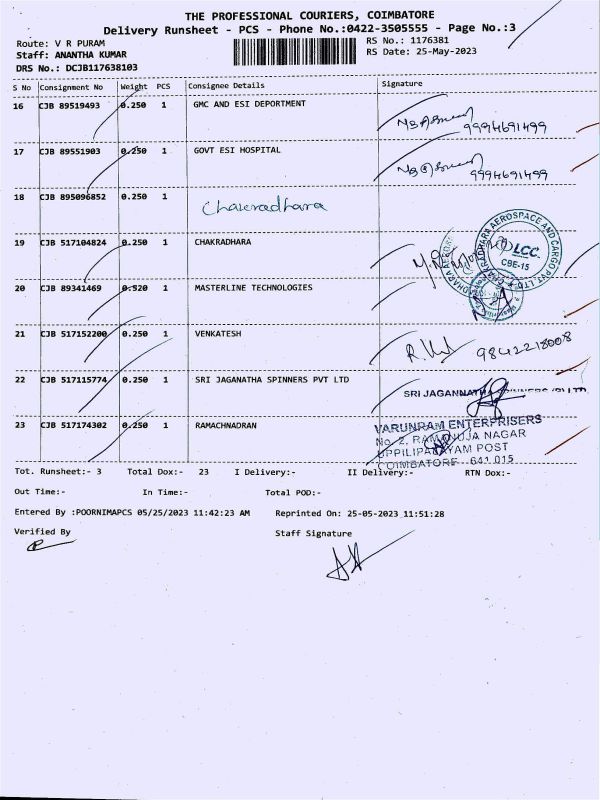 THE PROFESSIONAL COURIERS, COIMBATORE
Delivery Runsheet - PCS - Phone No.:0422-3505555 - Page No.:3
Route: V R PURAM
RS No.: 1176381
Staff: ANANTHA KUMAR
RS Date: 25-May-2023
DRS No.: DCJB117638103
S No Consignment No Weight PCS Consignee Details Signature
16 CJB 89519493 0.250 1 GMC AND ESI DEPORTMENT
9994691499
17 CJB 89551903 0.250 1 GOVT ESI HOSPITAL
9994691499
18 CJB 895096852 0.250 1 Chakradhara
19 CJB 517104824 0.250 1 CHAKRADHARA
CHAKRADHARA AEROSPACE AND CARGO PVT LTD
LCC.
CBE-15
20 CJB 89341469 0.520 1 MASTERLINE TECHNOLOGIES
21 CJB 517152200 0.250 1 VENKATESH
9842218008
22 CJB 517115774 0.250 1 SRI JAGANATHA SPINNERS PVT LTD
SRI JAGANNATHA SPINNERS (P) LTD
23 CJB 517174302 0.250 1 RAMACHNADRAN
VARUNRAM ENTERPRISERS
No. 2, RAMANUJA NAGAR
UPPILIPALAYAM POST
COIMBATORE - 641 015
Tot. Runsheet:- 3 Total Dox:- 23 I Delivery:- II Delivery:- RTN Dox:-
Out Time:- In Time:- Total POD:-
Entered By :POORNIMAPCS 05/25/2023 11:42:23 AM Reprinted On: 25-05-2023 11:51:28
Verified By Staff Signature